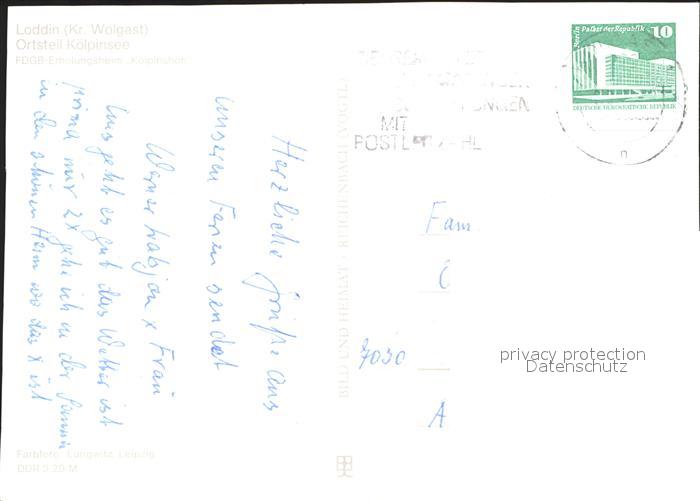 Loddin (Kr. Wolgast)
Ortsteil Kölpinsee
FDGB-Erholungsheim „Kölpinshöh"
Herzliche Grüße aus
unseren Ferien sendet
Werner u Frau
Uns geht es gut das Wetter ist
prima nur 2x gehe ich in der Sonne
in den schönen Heim wo das X ist
Farbfoto: Lungwitz, Leipzig
DDR 0,20 M
BILD UND HEIMAT · REICHENBACH VOGTL
MIT
Berlin Palast der Republik 10
DEUTSCHE DEMOKRATISCHE REPUBLIK
n
Fam
7030
A
privacy protection
Datenschutz